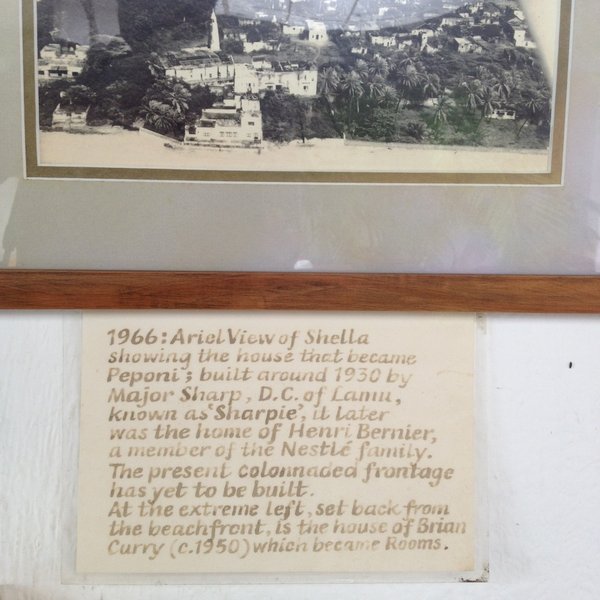 1966: Ariel View of Shella
showing the house that became
Peponi'; built around 1930 by
Major Sharp, D.C. of Lamu,
known as 'Sharpie', it later
was the home of Henri Bernier,
a member of the Nestlé family.
The present colonnaded frontage
has yet to be built.
At the extreme left, set back from
the beachfront, is the house of Brian
Curry (c.1950) which became Rooms.